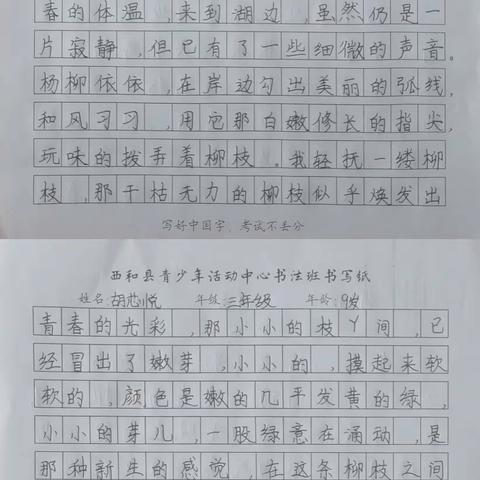 春的体温,来到湖边,虽然仍是一
片寂静,但已有了一些细微的声音。
杨柳依依,在岸边勾出美丽的弧线,
和风习习,用它那白嫩修长的指尖,
玩味的拨弄着柳枝。我轻抚一缕柳
枝,那干枯无力的柳枝似乎焕发出
写好中国字,考试不丢分
西和县青少年活动中心书法班书写纸
姓名:胡芯悦 年级:三年级 年龄:9岁
青春的光彩,那小小的枝丫间,已
经冒出了嫩芽,小小的,摸起来软
软的,颜色是嫩的几乎发黄的绿,
小小的芽儿,一股绿意在涌动,是
那种新生的感觉,在这条柳枝之间